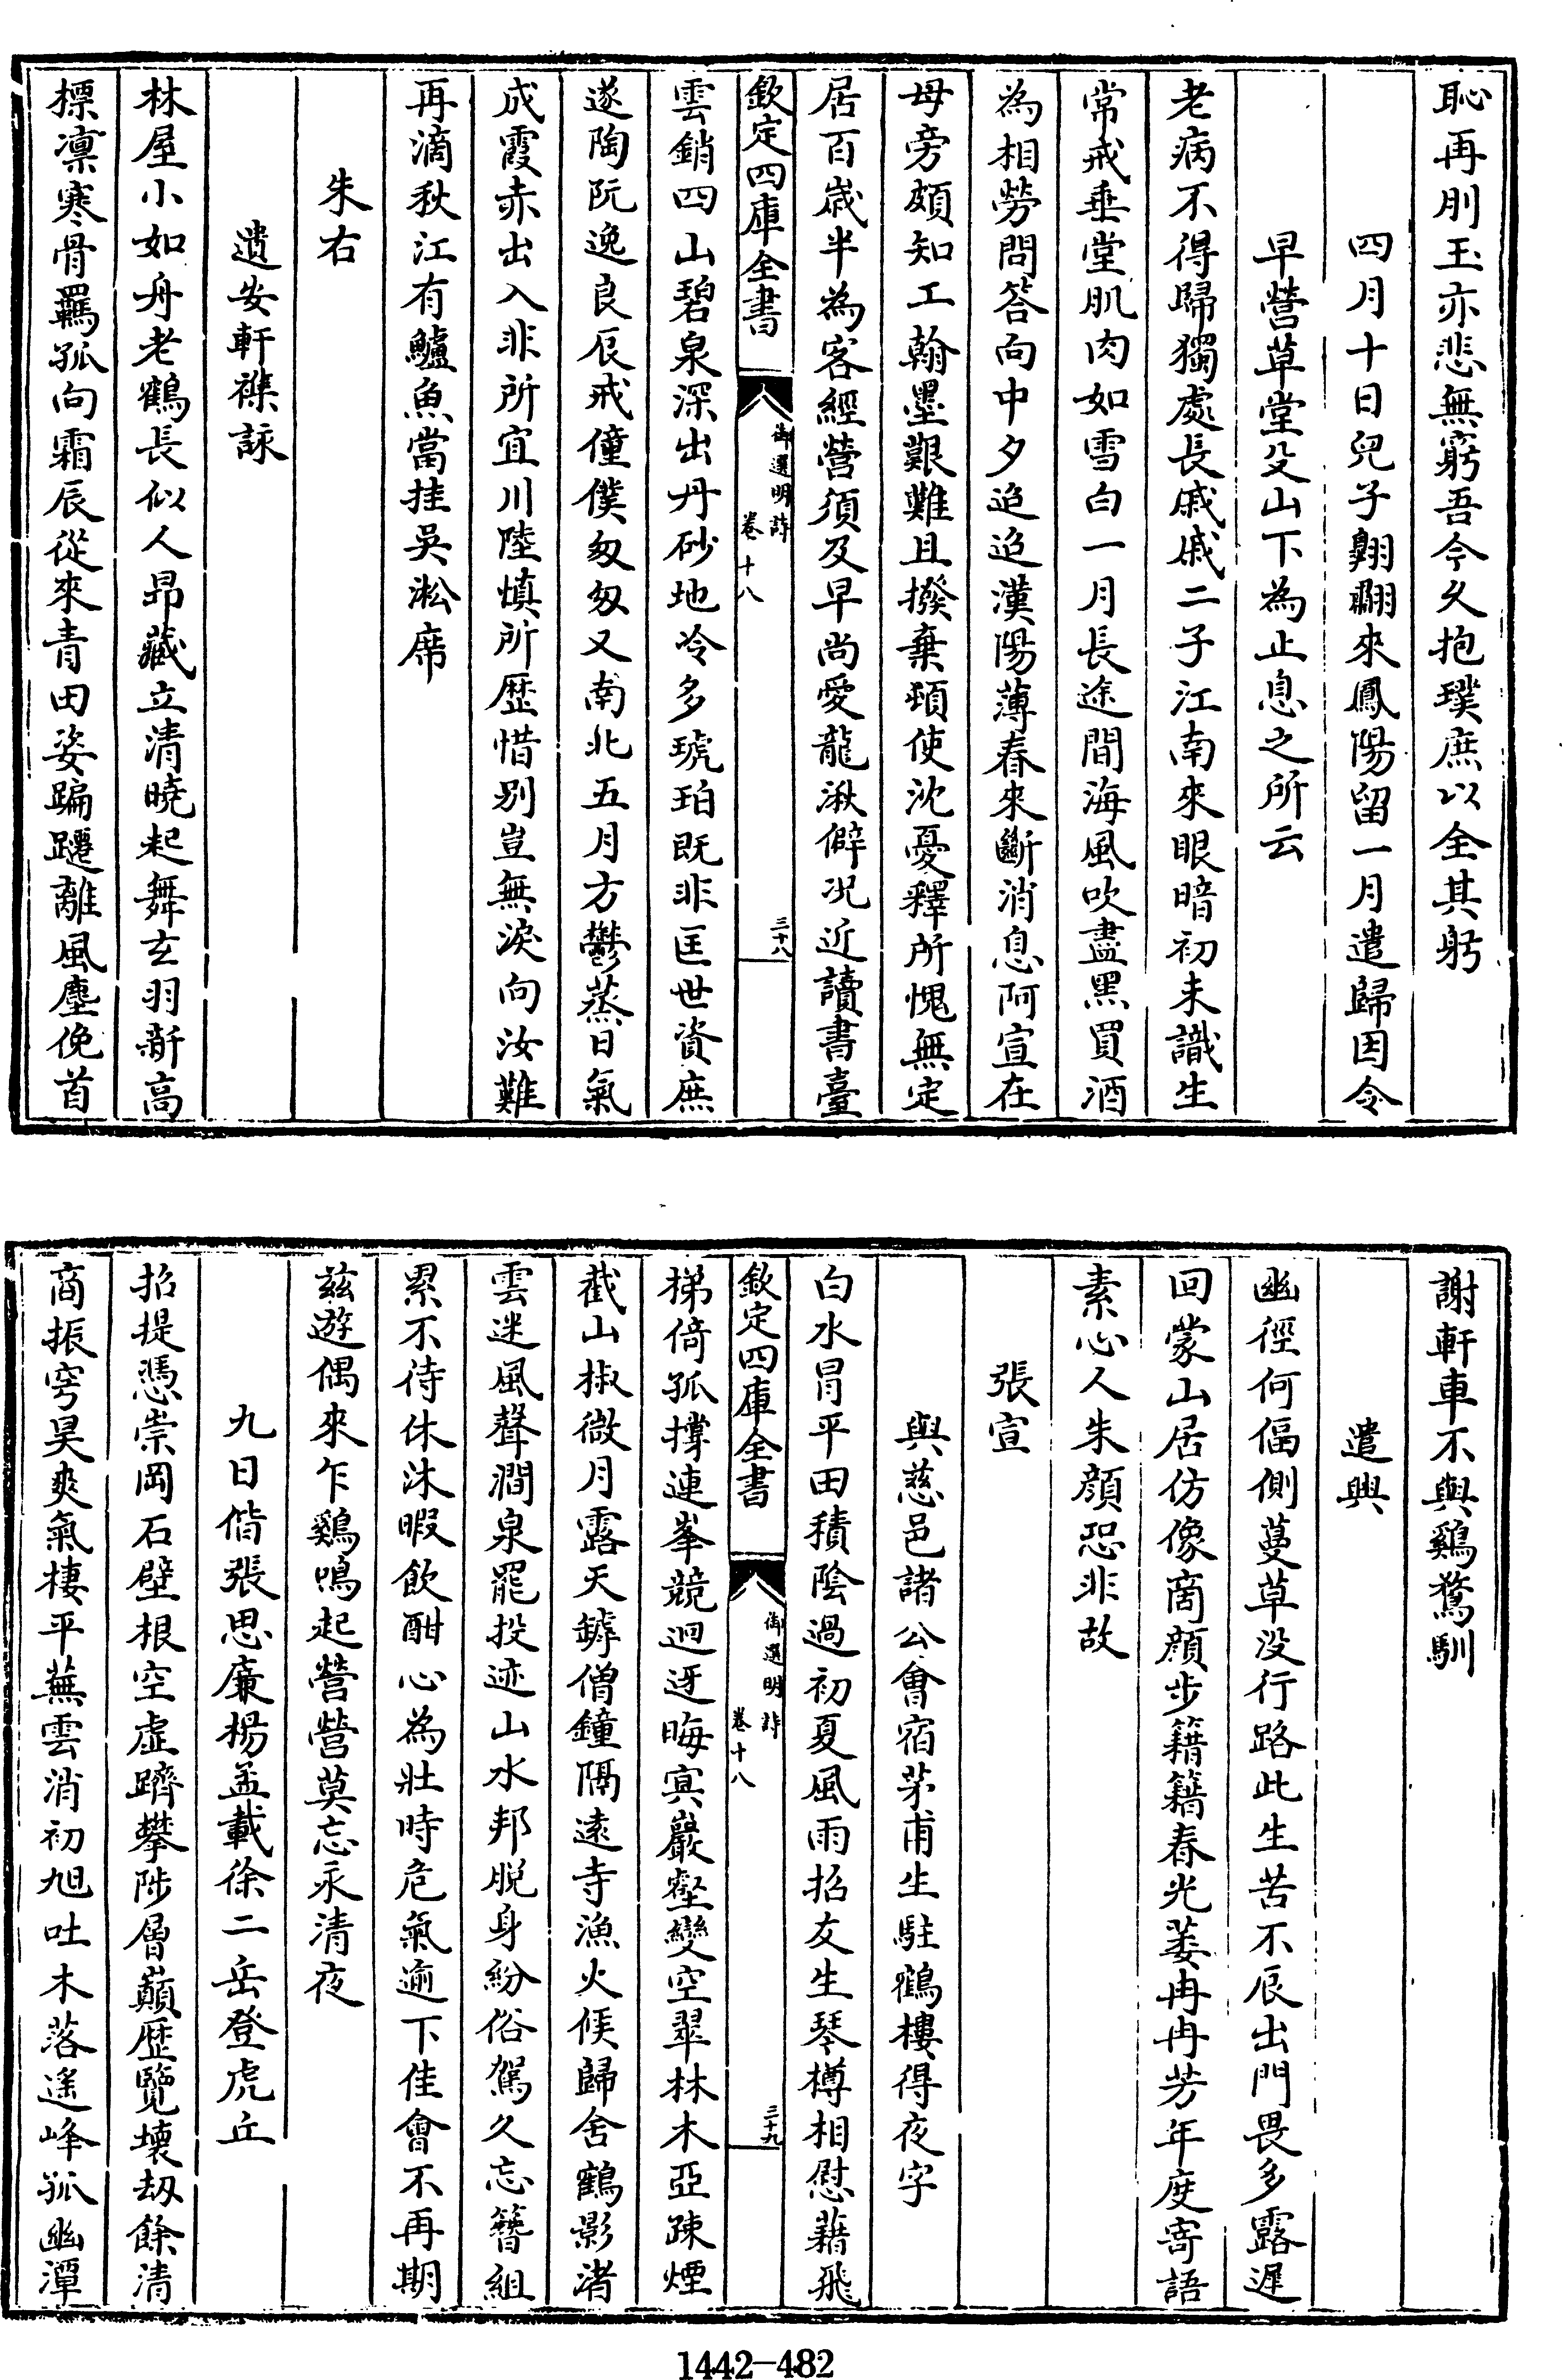 恥再刖玉亦悲無窮吾今久抱璞庶以全其躬
四月十日兒子翺翾來鳳陽留一月遣歸因令
早營草堂殳山下為止息之所云
老病不得歸獨處長戚戚二子江南來眼暗初未識生
常戒垂堂肌肉如雪白一月長途間海風吹盡黑買酒
為相勞問答向中夕迢迢漢陽薄春來斷消息阿宣在
母旁頗知工翰墨艱難且撥棄頓使沈憂釋所愧無定
居百歲半為客經營須及早尚愛龍湫僻况近讀書臺
欽定四庫全書
御選明詩
卷十八
三十八
雲銷四山碧泉深出丹砂地冷多琥珀既非匡世資庶
遂陶阮逸良辰戒僮僕匆匆又南北五月方鬱蒸日氣
成霞赤出入非所宜川陸慎所歷惜別豈無淚向汝難
再滴秋江有鱸魚當挂吳淞席
朱右
遺安軒襍詠
林屋小如舟老鶴長似人昂藏立清曉起舞玄羽新高
標凛寒骨羈孤向霜辰從來青田姿蹁躚離風塵俛首
謝軒車不與鷄鶩馴
遣興
幽徑何偪側蔓草没行路此生苦不辰出門畏多露遲
回蒙山居仿像商顔步籍籍春光萎冉冉芳年度寄語
素心人朱顔恐非故
張宣
與慈邑諸公會宿茅甫生駐鶴樓得夜字
白水冒平田積陰過初夏風雨招友生琴樽相慰藉飛
欽定四庫全書
御選明詩
卷十八
三十九
梯倚孤撐連峯競迴迓晦寅巖壑變空翠林木亞疎煙
截山椒微月露天罅僧鐘隔遠寺漁火候歸舍鶴影渚
雲迷風聲澗泉罷投迹山水邦脱身紛俗駕久忘簪組
累不待休沐暇飲酣心為壯時危氣逾下佳會不再期
兹遊偶來乍鷄鳴起營營莫忘永清夜
九日偕張思廉楊孟載徐二岳登虎丘
招提憑崇岡石壁根空虚躋攀陟層巔歷覽壞劫餘清
商振穹昊爽氣棲平蕪雲消初旭吐木落遙峰孤幽潭
1442-482